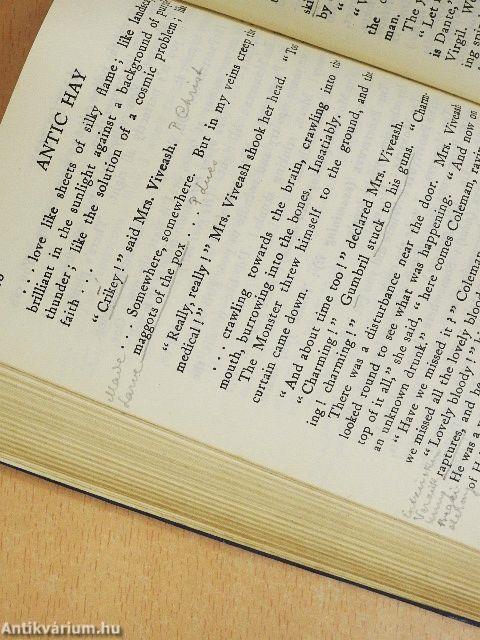 ANTIC HAY
... love like sheets of silky flame; like
brilliant in the sunlight against a background of
thunder; like the solution of a cosmic problem;
faith ...
"Crikey!" said Mrs. Viveash.
... Somewhere, somewhere. But in my veins creep
maggots of the pox ...
"Really, really!" Mrs. Viveash shook her head.
medical!"
... crawling towards the brain, crawling into
mouth, burrowing into the bones. Insatiably.
The Monster threw himself to the ground, and
curtain came down.
"And about time too!" declared Mrs. Viveash.
"Charming!" Gumbril stuck to his guns. "Charm-
ing! charming!"
There was a disturbance near the door. Mrs.
looked round to see what was happening. "And now on
top of it all," she said, "here comes Coleman,
an unknown drunk."
"Have we missed it?" Coleman
we missed all the lovely bloody
"Lovely bloody!"
raptures, and
He was a
of
the
man.
The
"Let
is Dante,"
Virgil.
by "
Larve
Antikvárium.hu